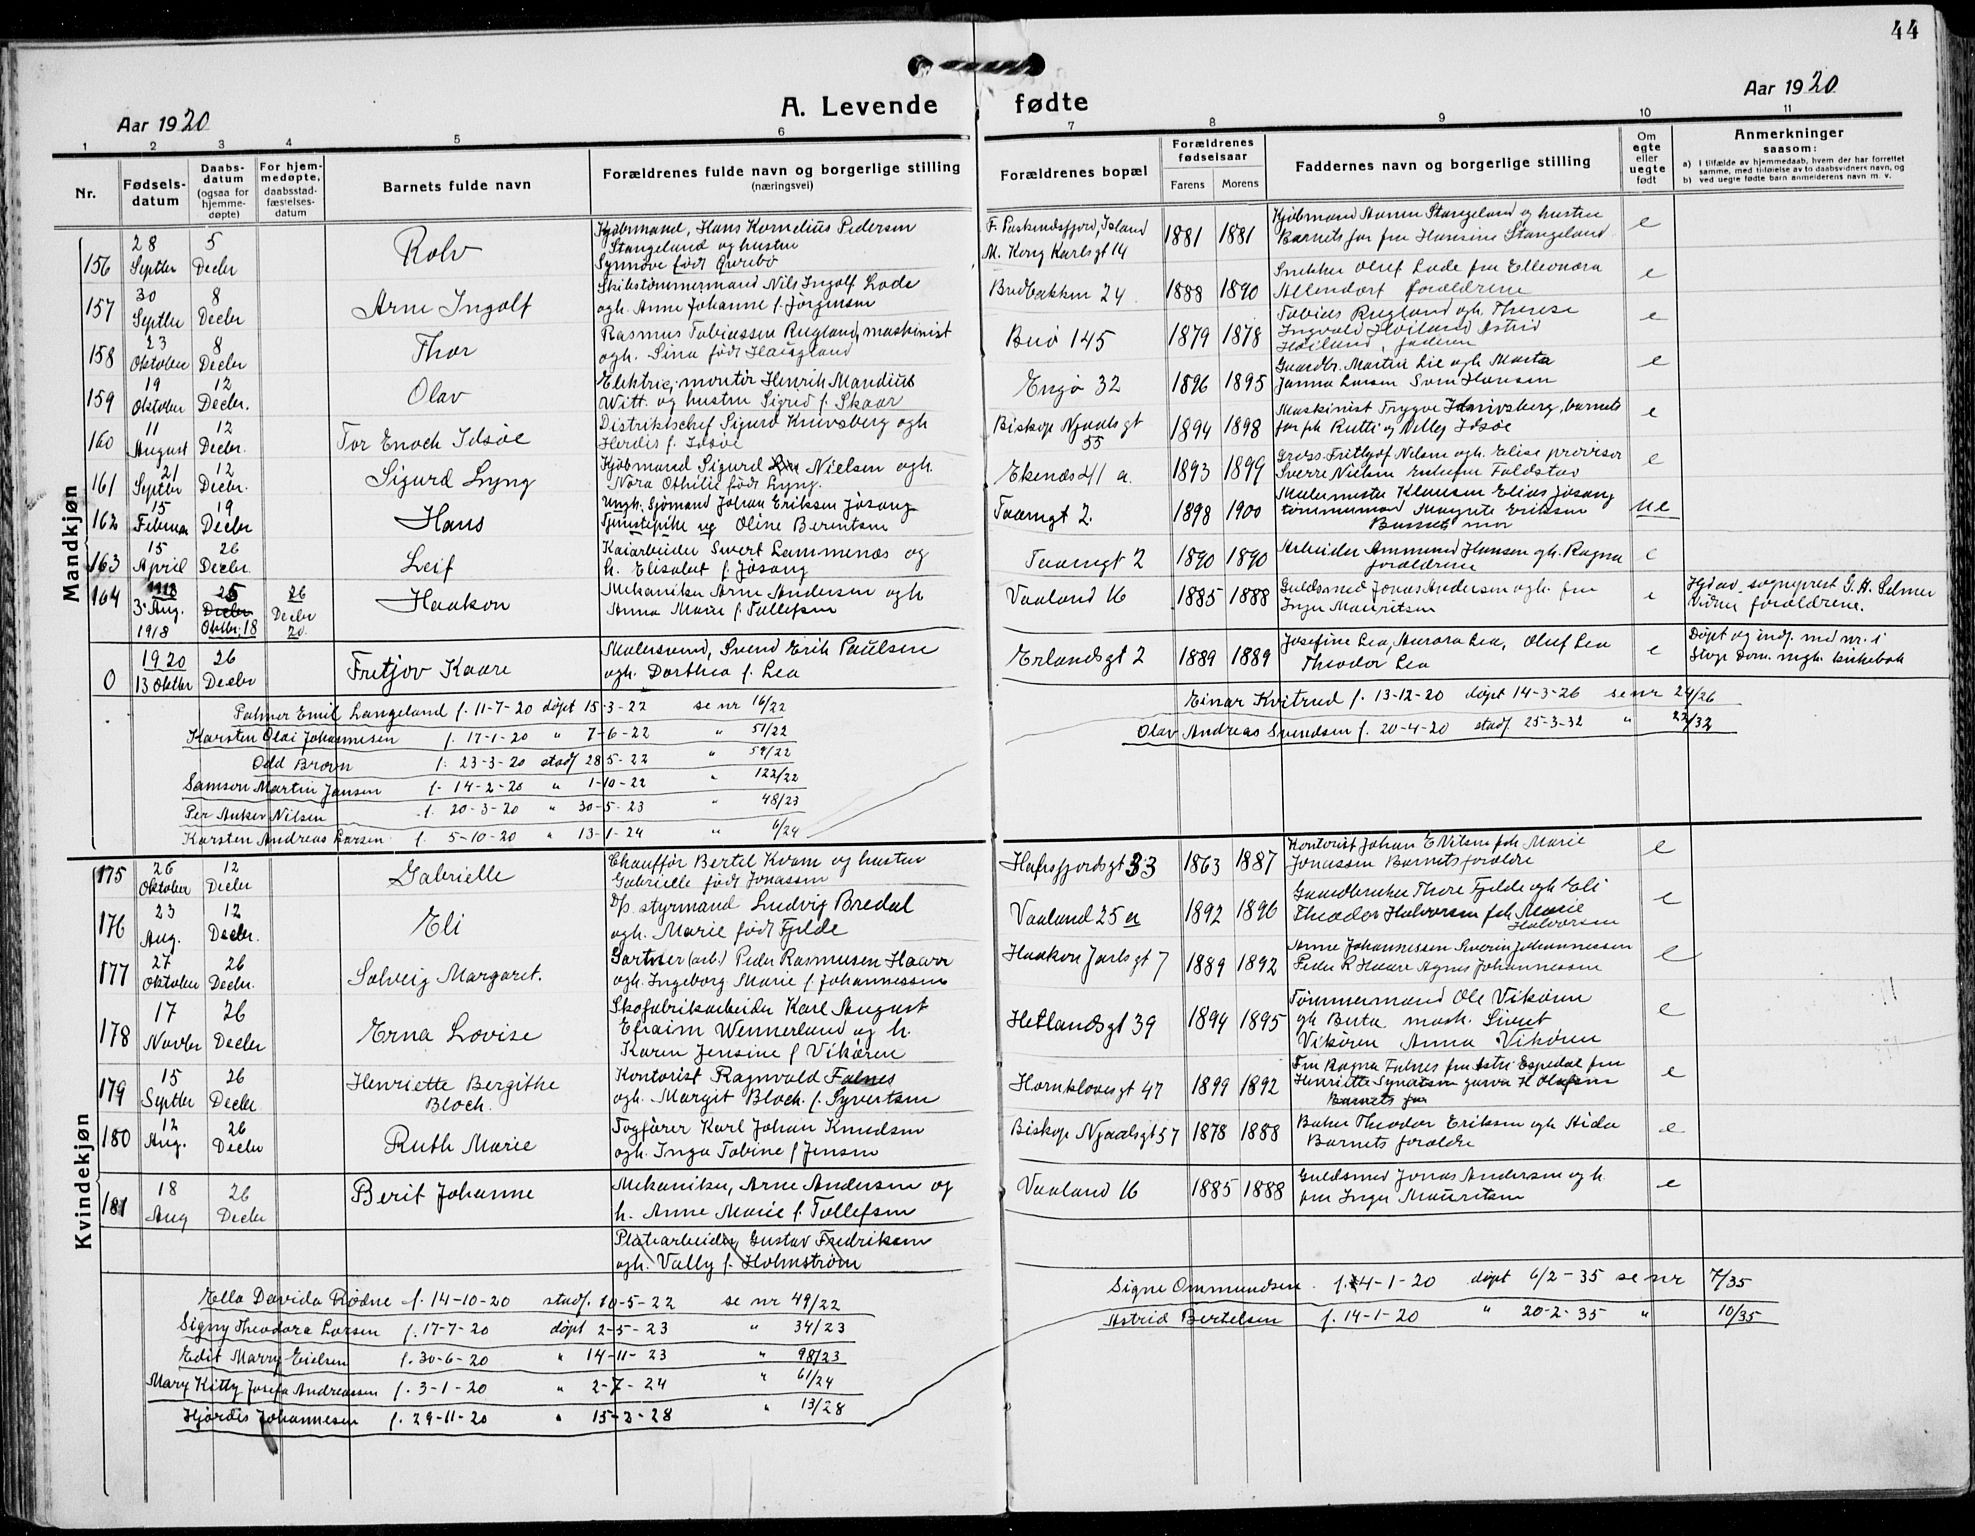 44
Aar 1920
A. Levende fødte
Aar 1920
1 2 3 4 5 6 7 8 9 10 11
Nr.
Fødsels-
datum
Daabs-
datum
(ogsaa for
hjemme-
døpte)
For hjem-
medøpte,
daabsstad-
fæstelses-
datum
Barnets fulde navn
Forældrenes fulde navn og borgerlige stilling
(næringsvei)
Forældrenes bopæl
Forældrenes
fødselsaar
Farens Morens
Faddernes navn og borgerlige stilling
Om
egte
eller
uegte
født
Anmerkninger
saasom:
a) I tilfælde av hjemmedaab, hvem der har forrettet
samme, med tilføielse av to daabsvidners navn, og
b) ved uegte fødte barn anmelderens navn m. v.
Mandkjøn
156 28 Septbr 5 Decbr Rolv
Kjøbmand, Hans Kornelius Pedersen
Stangeland og hustru
Synnøve født Øvrebø
F. Faskrudsfjord, Island
M. Kong Karlsgt 14
1881 1881
Kjøbmand Stangeland og hustru
Barnets far fru Hansine Stangeland
e
157 30 Septbr 8 Decbr Arne Ingolf
Skibstømmermand Nils Ingolf Lode
ogh. Anne Johanne f. Jørgensen
Bredbakken 24
1888 1890
Snekker Olsef Lode fru Elleonora
Allendorf forældrene
e
158 23 Oktober 8 Decbr Thor
Rasmus Tobiassen Rugland, maskinist
ogh. Sina født Hausgland
Buø 145
1879 1878
Tobias Rugland ogh. Therese
Ingvald Høiland Astrid
Høiland, faderen
e
159 19 Oktober 12 Decbr. Olav
Elektric. montør Henrik Mandius
Witt. og hustru Sigrid f. Skaar
Engø 32
1896 1895
Gaardbr. Martin Lie ogh Marta
Janna Larsen Sven Hansen
e
160 11 August 12 Decbr. Tor Enoch Idsøe
Distriktschef Sigurd Knivsberg ogh
Herdis f. Idsøe
Biskop Njaalsgt
55
1894 1898
Maskinist Trygve Knivsberg, barnets
far frk Rutti og Nelly Idsøe
e
161 21 Septbr 12 Decbr. Sigurd Lyng
Kjøbmand Sigurd Nielsen ogh.
Nora Othilie født Lyng.
Ekenæs 41 a.
1893 1899
Gross. Fritljof Nilsen ogh. Elise provisor
Sverre Nielsen Faldstad
e
162 15 Februar 19 Decbr Hans
Ungk. Sjømand Johan Eriksen Jøsang
Tjenestepike ug Oline Berentsen
Taarngt 2.
1898 1900
Malermester Klausen Elias Jøsang
tømmermand Magnte Eriksen
Barnets mor
ue
163 15 April 26 Decbr. Leif
Kaiarbeider Sivert Lammenæs og
h. Elisabet f. Jøsang
Taarngt 2
1890 1890
Arbeider Ammund Hansen ogh. Ragna
forældrene
e
164 3. Aug. 1918 25 Oktbr: 18 26 Decbr 20. Haakon
Mekaniker Arne Andersen ogh
Anna Marie f. Tollefsen
Vaaland 16
1885 1888
Guldsmed Jonas Andersen ogh. fru
Inger Mauritsen
e
Hjdav. sogneprest G. A. Selmer
Vidner forældrene.
0 1920 13 Oktbr 26 Decbr Fretjov Kaare
Malersvend, Svend Erik Paulsen
ogh. Dorthea f. Lea
Erlandsgt 2
1889 1889
Josefine Lea, Aurora Lea, Oluf Lea
Theodor Lea
e
Døpt og indf. med nr. i
Stvgr Dom. mgh. kirkebok
Palmer Emil Langeland f. 11-7-20 døpt 15-3-22 se nr 16/22
Karsten Olai Johannesen f. 17-1-20 " 7-6-22 " 51/22
Odd Brown f. 23-3-20 stadf 28-5-22 " 59/22
Samson Martin Jansen f. 14-2-20 " 1-10-22 " 122/22
Per Anker Nilsen f. 20-3-20 " 30-5-23 " 48/23
Karsten Andreas Larsen f. 5-10-20 " 13-1-24 " 6/24
Einar Kvitrud f. 13-12-20 døpt 14-3-26 se nr 24/26
Olav Andreas Svendsen f. 20-4-20 stadf. 25-3-32 " 22/32
Kvindekjøn
175 26 Oktober 12 Decbr Gabrielle
Chauffør Bertel Kvam og hustru
Gabrielle født Jonassen
Hafrsfjordsgt 33
1863 1887
Kontorist Johan E Nilsen frk Marie
Jonassen Barnets forældre
e
176 23 Aug. 12 Decbr. Eli
D/s styrmand Ludvig Bredal
ogh. Marie født Fjelde
Vaaland 25 a
1892 1896
Gaardbruker Thore Fjelde ogh Eli
Theodor Halvorsen frk Marie
Halvorsen
e
177 27 Oktober 26 Decbr. Solveig Margaret.
Gartner (arb.) Peder Rasmussen Haarr
ogh. Ingeborg Marie f. Johannessen
Haakon Jarlsgt 7
1889 1892
Anne Johannessen Sverin Johannessen
Peder R Haare Agnes Johannessen
e
178 17 Novbr 26 Decbr Erna Lovise
Skofabrikarbeider Karl August
Efraim Wennerland og h.
Karen Jensine f Vikøren
Hetlandsgt 39
1894 1895
Tømmermand Ole Vikøren
gh Berta mask. Sivert
Vikøren Anna Vikøren
e
179 15 Septbr 26 Decbr Henriette Bergithe
Bloch.
Kontorist Ragnvald Falnes
ogh. Margit Bloch. f. Syvertsen
Hornklovesgt 47
1899 1892
Fru Ragna Falnes fru Astri Espedal fru
Henriette garver H Olafsen
Barnets far
e
180 12 Aug. 26 Decbr Ruth Marie
Togfører Karl Johan Knudsen
ogh. Inga Tobine f Jensen
Biskop Njaalsgt 57
1878 1888
Baker Theodor Eriksen ogh Aida
Barnets forældre
e
181 18 Aug 26 Decbr Berit Johanne
Mekaniker, Arne Andersen og
h. Anne Marie f. Tollefsen
Vaaland 16
1885 1888
Guldsmed Jonas Andersen og h.
fru Inger Mauritsen
e
Platearbeider Gustav Fredriksen
ogh. Vally f. Holmstrøm
Ella Davida Rødne f. 14-10-20 stadf. 10-5-22 se nr 49/22
Signy Theodora Larsen f. 17-7-20 døpt 2-5-23 " 34/23
Edit Marry Eielsen f. 30-6-20 " 14-11-23 " 98/23
Mary Kitty Josefa Andreassen f. 3-1-20 " 2-7-24 " 61/24
Hjørdis Johannesen f. 29-11-20 " 15-2-28 " 13/28
Signe Ommundsen f. 14-1-20 døpt 6/2-35 se nr 7/35
Astrid Bertelsen f. 14-1-20 " 20-2-35 " 10/35